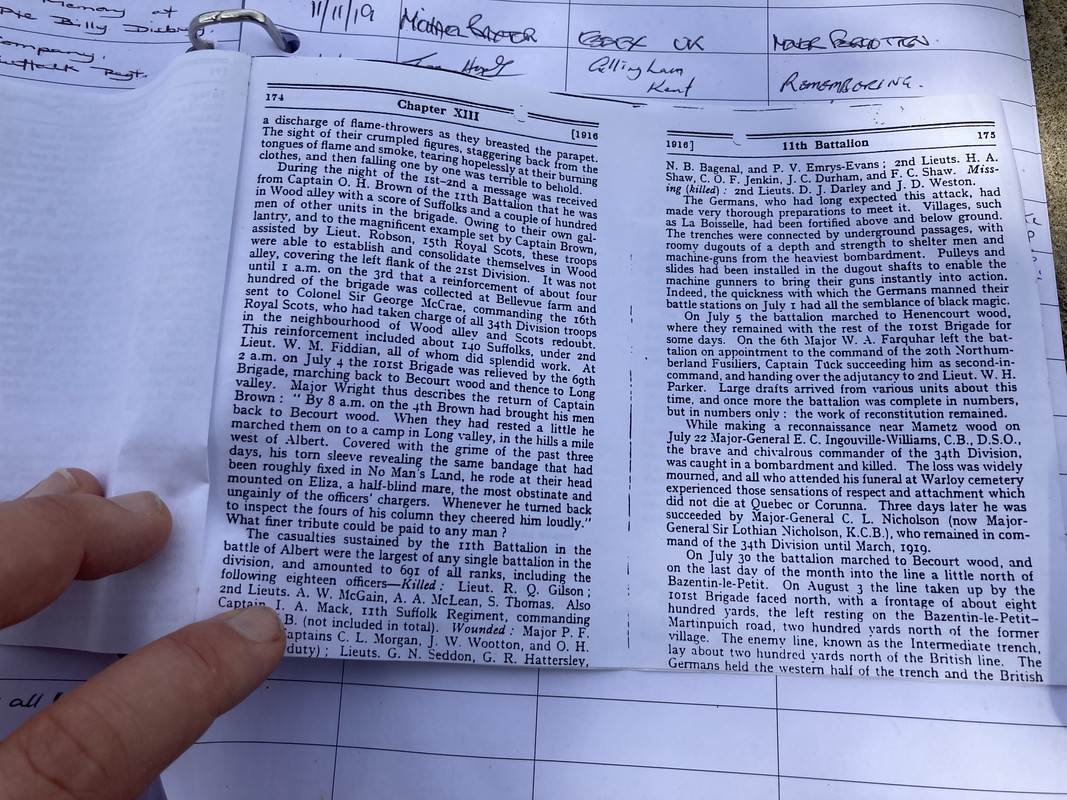 Memory of
Pte Billy
Company.
Suffolk Regt.
11/11/19
MICHAEL BAXTER
ESSEX UK
NEVER FORGOTTEN.
Gillingham
Kent
REMEMBERING.
174
Chapter XIII
[1916
a discharge of flame-throwers as they breasted the parapet.
The sight of their crumpled figures, staggering back from the
tongues of flame and smoke, tearing hopelessly at their burning
clothes, and then falling one by one was terrible to behold.
During the night of the 1st-2nd a message was received
from Captain O. H. Brown of the 11th Battalion that he was
in Wood alley with a score of Suffolks and a couple of hundred
men of other units in the brigade. Owing to their own gal-
lantry, and to the magnificent example set by Captain Brown,
assisted by Lieut. Robson, 15th Royal Scots, these troops
were able to establish and consolidate themselves in Wood
alley, covering the left flank of the 21st Division. It was not
until 1 a.m. on the 3rd that a reinforcement of about four
hundred of the brigade was collected at Bellevue farm and
sent to Colonel Sir George McCrae, commanding the 16th
Royal Scots, who had taken charge of all 34th Division troops
in the neighbourhood of Wood alley and Scots redoubt.
This reinforcement included about 140 Suffolks, under 2nd
Lieut. W. M. Fiddian, all of whom did splendid work. At
2 a.m. on July 4 the 101st Brigade was relieved by the 69th
Brigade, marching back to Becourt wood and thence to Long
valley. Major Wright thus describes the return of Captain
Brown: " By 8 a.m. on the 4th Brown had brought his men
back to Becourt wood. When they had rested a little he
marched them on to a camp in Long valley, in the hills a mile
west of Albert. Covered with the grime of the past three
days, his torn sleeve revealing the same bandage that had
been roughly fixed in No Man's Land, he rode at their head
mounted on Eliza, a half-blind mare, the most obstinate and
ungainly of the officers' chargers. Whenever he turned back
to inspect the fours of his column they cheered him loudly."
What finer tribute could be paid to any man ?
The casualties sustained by the 11th Battalion in the
battle of Albert were the largest of any single battalion in the
division, and amounted to 691 of all ranks, including the
following eighteen officers—Killed : Lieut. R. Q. Gilson ;
2nd Lieuts. A. W. McGain, A. A. McLean, S. Thomas. Also
Captain I. A. Mack, 11th Suffolk Regiment, commanding
B. (not included in total). Wounded : Major P. F.
Captains C. L. Morgan, J. W. Wootton, and O. H.
duty) ; Lieuts. G. N. Seddon, G. R. Hattersley,
1916]
11th Battalion
175
N. B. Bagenal, and P. V. Emrys-Evans ; 2nd Lieuts. H. A.
Shaw, C. O. F. Jenkin, J. C. Durham, and F. C. Shaw. Miss-
ing (killed) : 2nd Lieuts. D. J. Darley and J. D. Weston.
The Germans, who had long expected this attack, had
made very thorough preparations to meet it. Villages, such
as La Boisselle, had been fortified above and below ground.
The trenches were connected by underground passages, with
roomy dugouts of a depth and strength to shelter men and
machine-guns from the heaviest bombardment. Pulleys and
slides had been installed in the dugout shafts to enable the
machine gunners to bring their guns instantly into action.
Indeed, the quickness with which the Germans manned their
battle stations on July 1 had all the semblance of black magic.
On July 5 the battalion marched to Henencourt wood,
where they remained with the rest of the 101st Brigade for
some days. On the 6th Major W. A. Farquhar left the bat-
talion on appointment to the command of the 20th Northum-
berland Fusiliers, Captain Tuck succeeding him as second-in-
command, and handing over the adjutancy to 2nd Lieut. W. H.
Parker. Large drafts arrived from various units about this
time, and once more the battalion was complete in numbers,
but in numbers only : the work of reconstitution remained.
While making a reconnaissance near Mametz wood on
July 22 Major-General E. C. Ingouville-Williams, C.B., D.S.O.,
the brave and chivalrous commander of the 34th Division,
was caught in a bombardment and killed. The loss was widely
mourned, and all who attended his funeral at Warloy cemetery
experienced those sensations of respect and attachment which
did not die at Quebec or Corunna. Three days later he was
succeeded by Major-General C. L. Nicholson (now Major-
General Sir Lothian Nicholson, K.C.B.), who remained in com-
mand of the 34th Division until March, 1919.
On July 30 the battalion marched to Becourt wood, and
on the last day of the month into the line a little north of
Bazentin-le-Petit. On August 3 the line taken up by the
101st Brigade faced north, with a frontage of about eight
hundred yards, the left resting on the Bazentin-le-Petit–
Martinpuich road, two hundred yards north of the former
village. The enemy line, known as the Intermediate trench,
lay about two hundred yards north of the British line. The
Germans held the western half of the trench and the British
all